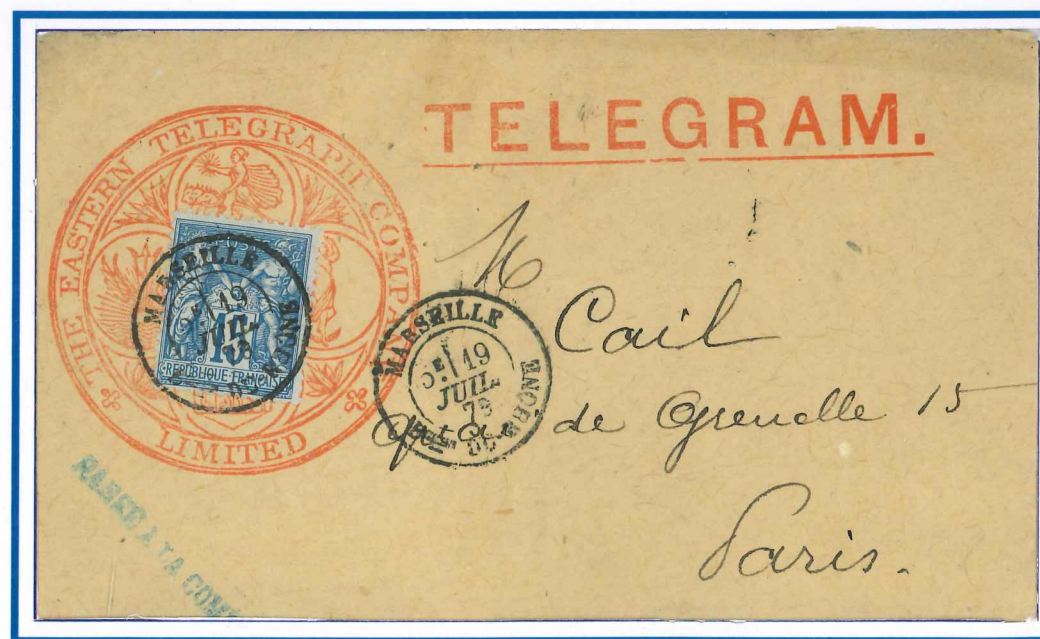 TELEGRAM.
THE EASTERN TELEGRAPH COMPA
LIMITED
MARSEILLE
19
JUIL.
15
REPUBLIQUE FRANÇAISE
MARSEILLE
5E 19
JUIL.
78
M
Cail
de Grenelle 15
Paris.
A LA